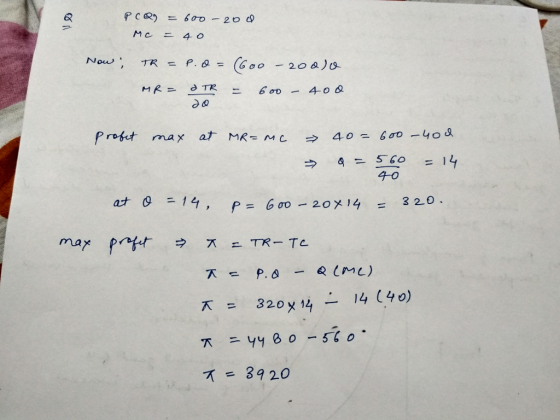 Q P(Q) = 600 - 20Q
MC = 40
Now; TR = P.Q = (600 - 20Q)Q
MR = ∂TR/∂Q = 600 - 40Q
Profit max at MR = MC ⇒ 40 = 600 - 40Q
⇒ Q = 560/40 = 14
at Q = 14, P = 600 - 20×14 = 320.
max profit ⇒ π = TR - TC
π = P.Q - Q(MC)
π = 320×14 - 14(40)
π = 4480 - 560
π = 3920